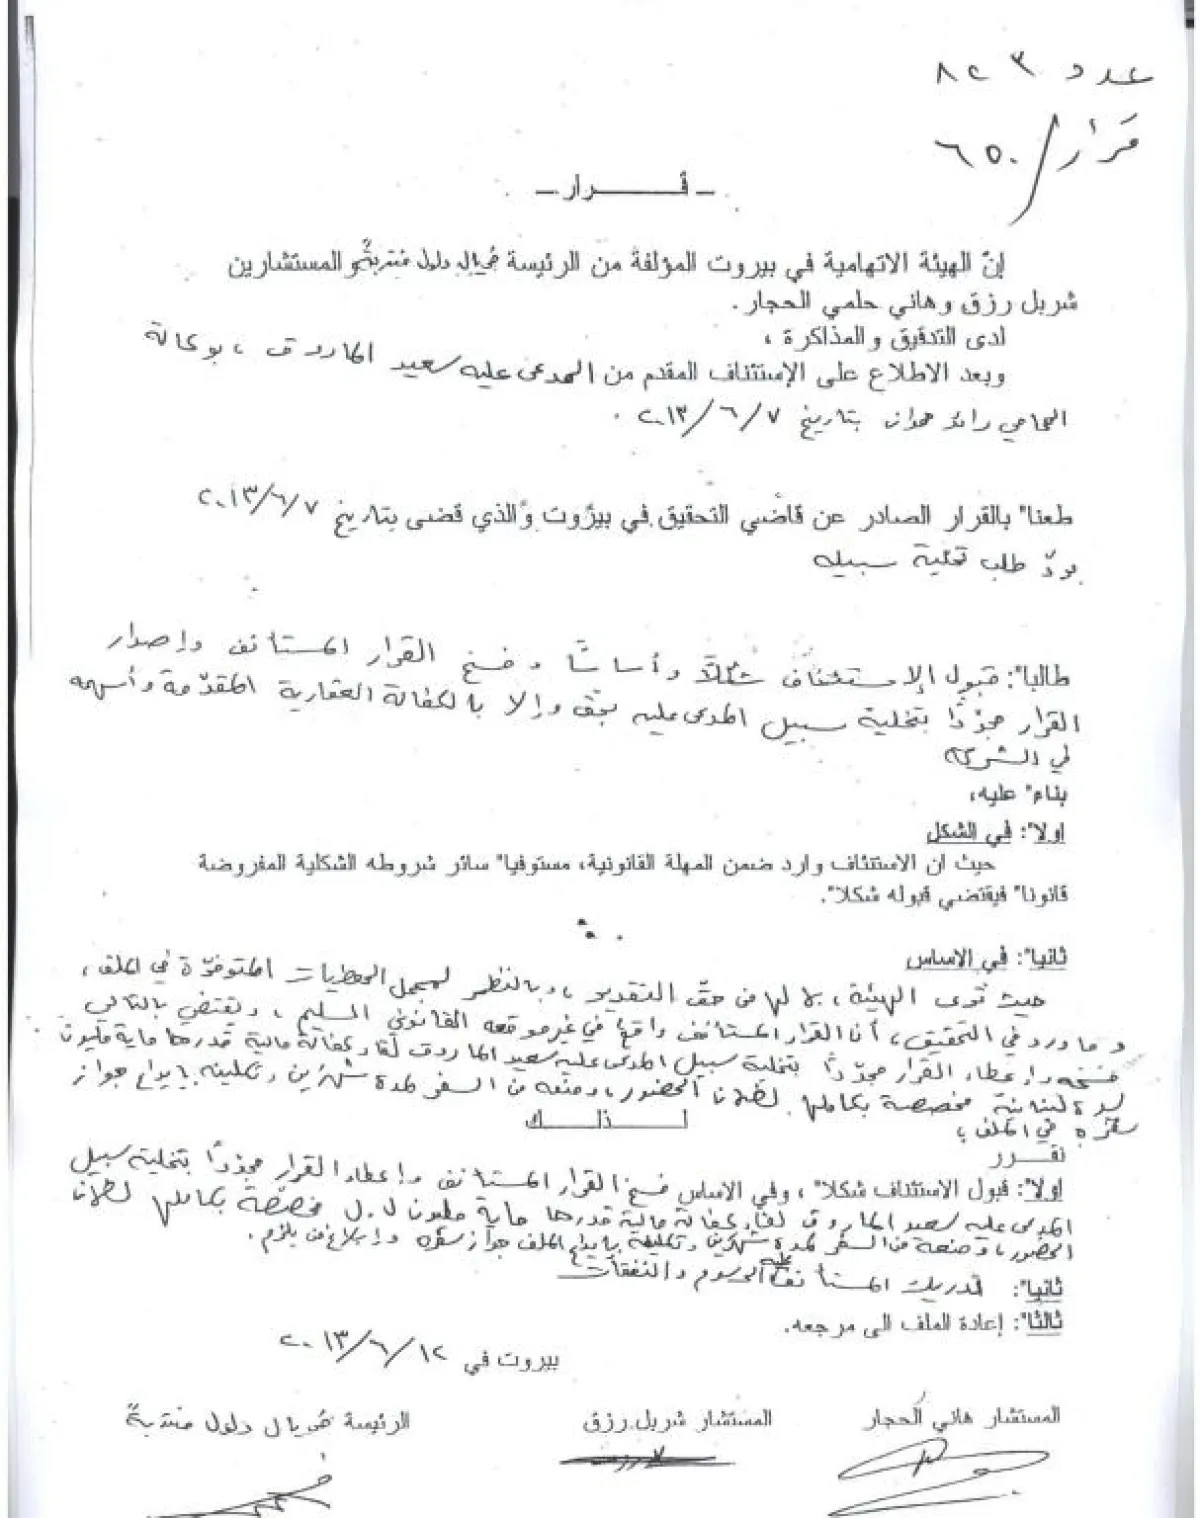 عدد ٨٢٣
قرار / ٦٥٠
ـ قـــــــرار ـ
إنّ الهيئة الاتهامية في بيروت المؤلفة من الرئيسة فريال دلول منتدبةً والمستشارين
شربل رزق وهاني حلمي الحجار.
لدى التدقيق والمذاكرة ،
وبعد الاطلاع على الإستئناف المقدم من المدعى عليه سعيد الماروق ، بوكالة
المحامي رائد حمدان بتاريخ ٢٠١٣/٦/٧ .
طعنا" بالقرار الصادر عن قاضي التحقيق في بيروت والذي قضى بتاريخ ٢٠١٣/٦/٧
بردّ طلب تخلية سبيله
طالبا": قبول الإستئناف شكلاً وأساسًا وفسخ القرار المستأنف وإصدار
القرار مجدّدًا بتخلية سبيل المدعى عليه بحق وإلا بالكفالة العقارية المقدّمة وأسهمه
في الشركة
بناء" عليه،
اولا": في الشكل
حيث ان الاستئناف وارد ضمن المهلة القانونية، مستوفيا" سائر شروطه الشكلية المفروضة
قانونا" فيقتضي قبوله شكلا".
ثانيا": في الاساس
حيث ترى الهيئة، بما لها من حقّ التقدير ، وبالنظر لمجمل المعطيات المتوفرّة في الملف ،
وما ورد في التحقيق، أنّ القرار المستأنف واقعٌ في غير موقعه القانوني السليم ، ويقتضي بالتالي
فسخه وإعطاء القرار مجدّدًا بتخلية سبيل المدعى عليه سعيد الماروق لقاء كفالة مالية قدرها ماية مليون
ليرة لبنانية مخصصة بكاملها لضمان الحضور ، ومنعه من السفر لمدة شهرين وتكليفه بإيداع جواز
سفره في الملف ،
لـــــذلـــــك
نقـــرر
اولا": قبول الاستئناف شكلا" ، وفي الاساس فسخ القرار المستأنف وإعطاء القرار مجدّدًا بتخلية سبيل
المدعى عليه سعيد الماروق لقاء كفالة مالية قدرها ماية مليون ل.ل مخصّصة بكاملها لضمان
الحضور ، ومنعه من السفر لمدة شهرين وتكليفه بإيداع الملف جواز سفره وإبلاغ من يلزم .
ثانيا": تدريك المستأنف عليه الرسوم والنفقات
ثالثا": إعادة الملف الى مرجعه.
بيروت في ٢٠١٣/٦/١٢
المستشار هاني الحجار المستشار شربل رزق الرئيسة فريال دلول منتدبةً